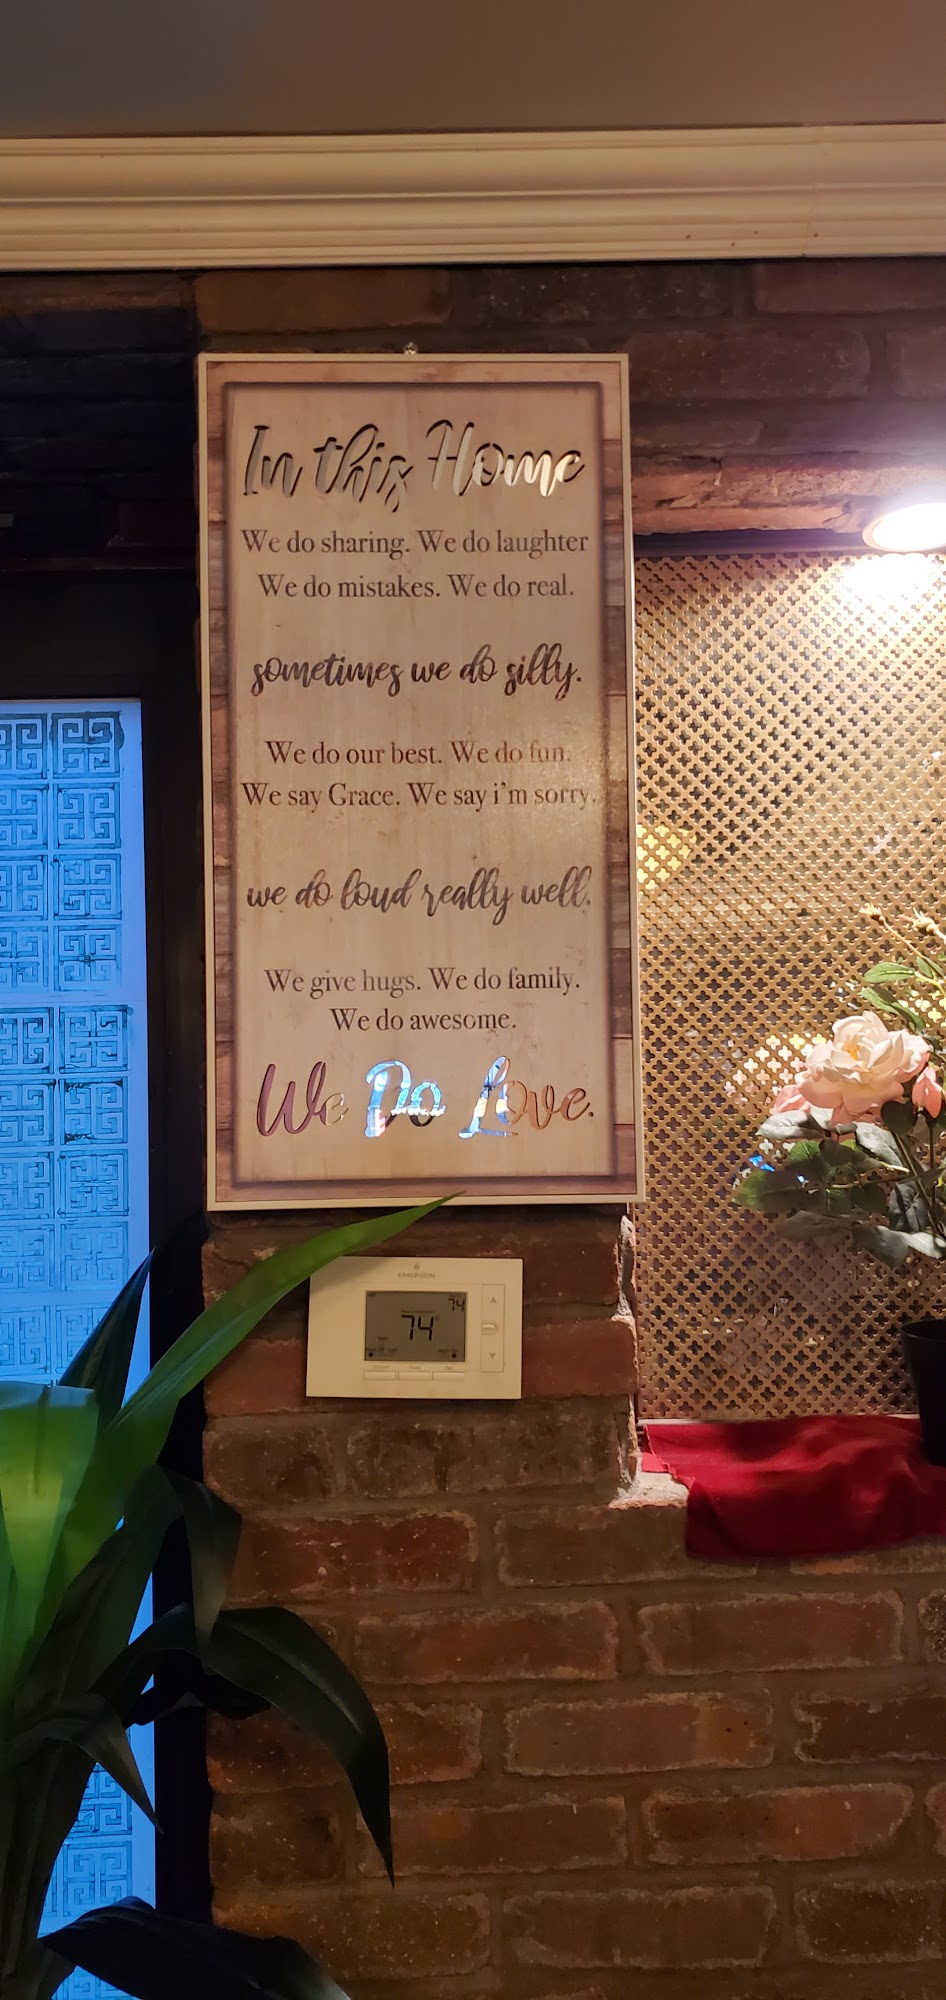 In this Home
We do sharing. We do laughter
We do mistakes. We do real.
sometimes we do silly.
We do our best. We do fun.
We say Grace. We say i'm sorry.
we do loud really well.
We give hugs. We do family.
We do awesome.
We Do Love.
EMERSON
74
74